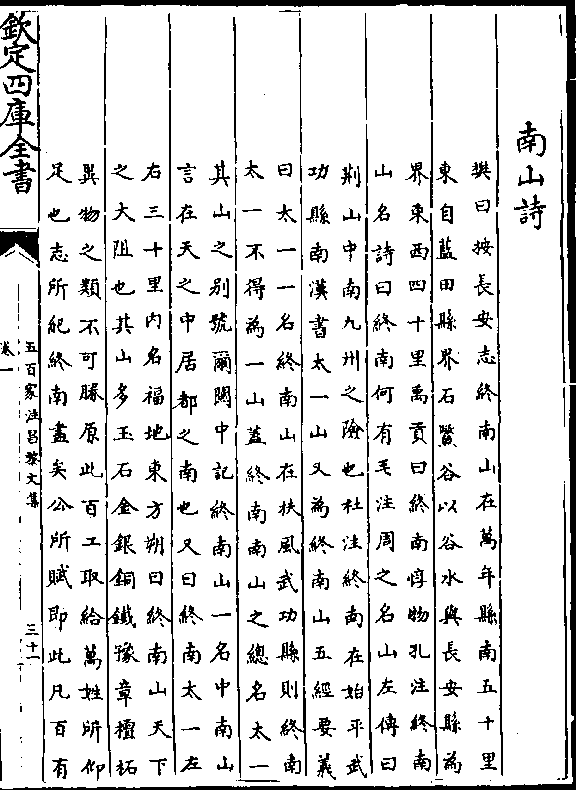 南山詩
樊曰按長安志終南山在萬年縣南五十里
東自藍田縣界石鱉谷以谷水與長安縣為
界東西四十里禹貢曰終南惇物孔注終南
山名詩曰終南何有毛注周之名山左傳曰
荆山中南九州之險也杜注終南在始平武
功縣南漢書太一山又為終南山五經要義
曰太一一名終南山在扶風武功縣則終南
太一不得為一山蓋終南南山之總名太一
其山之别號爾關中記終南山一名中南山
言在天之中居都之南也又曰終南太一左
右三十里内名福地東方朔曰終南山天下
之大阻也其山多玉石金銀銅鐵豫章檀柘
異物之類不可勝原此百工取給萬姓所仰
足也志所紀終南盡矣公所賦即此凡百有
欽定四庫全書
五百家注昌黎文集
卷一
三十一